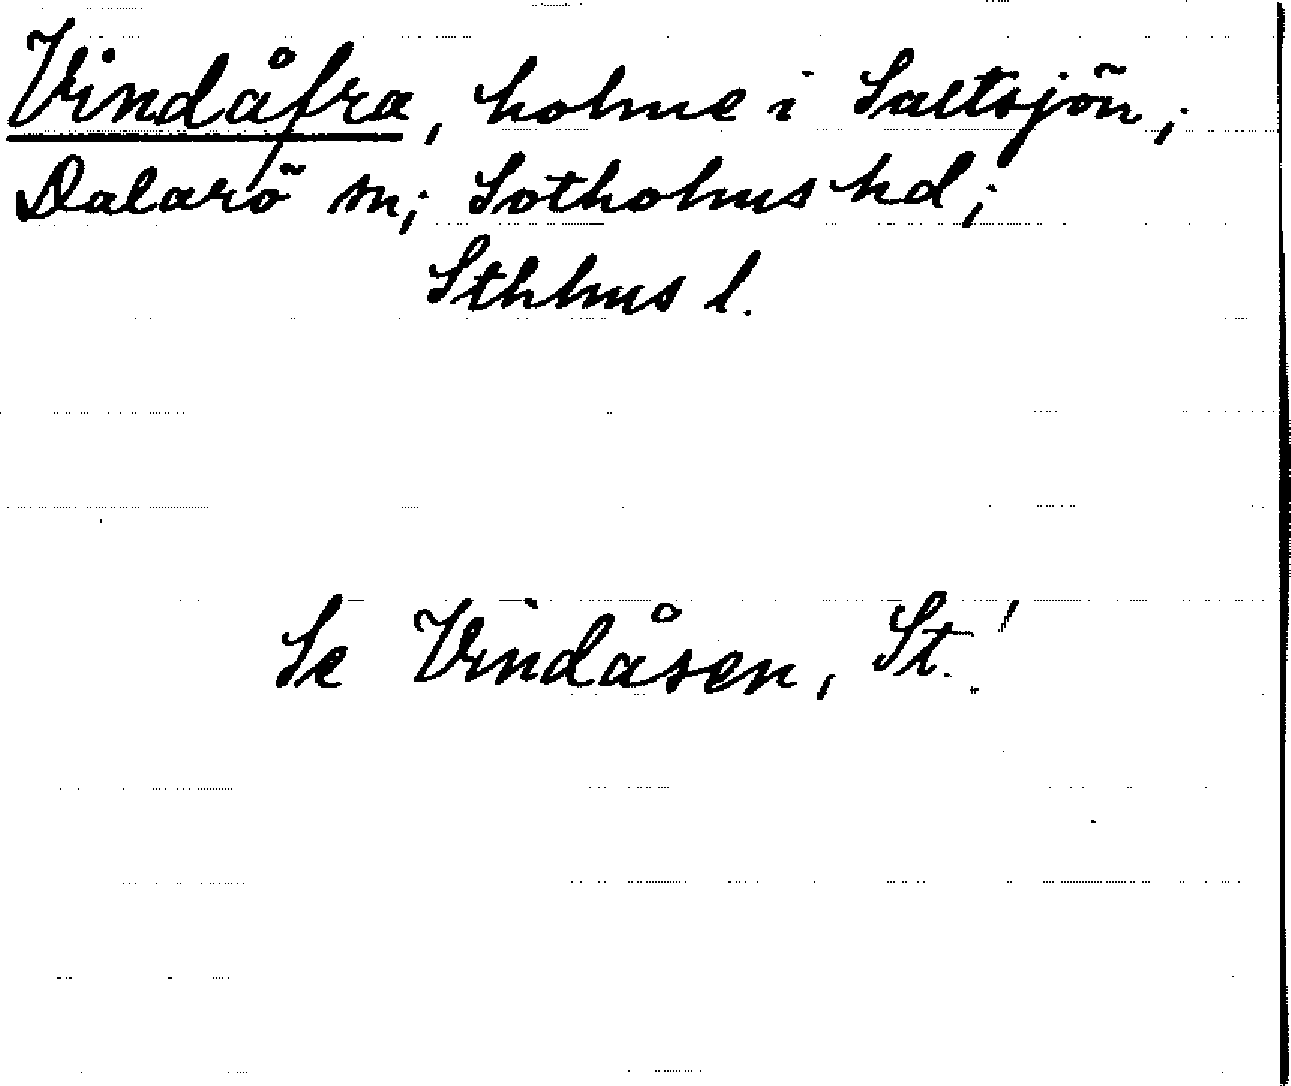 Vindåfra, holme i Saltsjön;
Dalarö sn; Sotholms hd;
Sthlms l.
Se Vindåsen, St.!